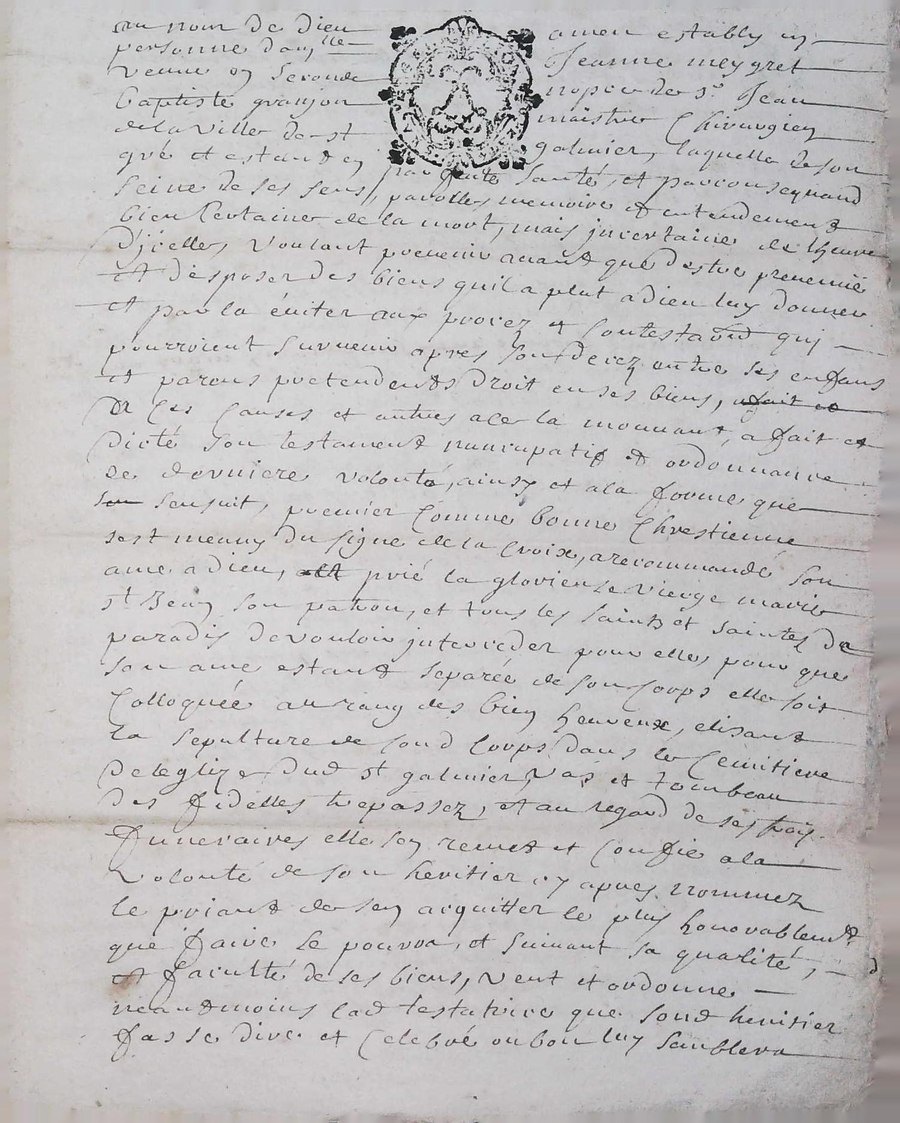 au nom de dieu amen establÿ en
personne dam.lle Jeanne meygret
venue en seconde nopce de s.r Jean
baptiste granjon maistre Chirurgien
de la ville de st galmier, laquelle de son
gré et estand en parfaite santé, et par consequand
seine de ses sens, parolles memoire et entendement
bien certaine de la mort, mais jncertaine de lheure
djcelle, voulant prevenir avant que destre prevenüe
et desposer des biens quil a plut a dieu luy donner
et par la éviter aux procez et contestaõn quj
pourroient survenir apres son decez entre ses enfans
et parans pretendents droit en ses biens, fait et
De ces causes et autres a ce la mouvant, a fait et
dicté son testament nuncupatif et ordonnance
de derniere volonté, ainsy et a la forme que
son sensuit, premier comme bonne Chrestienne
sest meuny du signe de la Croix, a recommandé son
ame a dieu, et prié la glorieuse vierge marie
st Jean son patron, et tous les saints et saintes de
paradis de vouloir jnterceder pour elles pour que
son ame estand separée de son corps elle soit
Colloquée au rang des bien heureux, elisant
la sepulture de sond corps dans le Cemitiere
de leglize dud st galmier, vas et tombeau
des fidelles trepassez, et au regard de ses frais
funeraires elle sen remet et confie a la
volonté de son heritier cy apres nommez
le priant de sen acquitter le plus honorablemt
que faire se pourra, et suivant sa qualité,
et faculté de ses biens, veut et ordonne
neaudmoins lad testatrice que sond heritier
fasse dire et celebré ou bon luy semblera